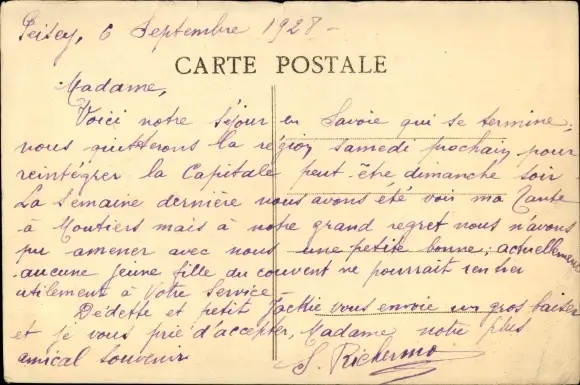 Peisey, 6 Septembre 1928 -
CARTE POSTALE
Madame,
Voici notre séjour en Savoie qui se termine;
nous quitterons la région samedi prochain pour
reintégrer la Capitale peut-être dimanche soir
La semaine dernière nous avons été voir ma Tante
à Moutiers mais à notre grand regret nous n'avons
pu amener avec nous une petite bonne; actuellement
aucune jeune fille du couvent ne pourrait entrer
utilement à Votre Service -
Dédette et petit Jackie vous envoie un gros baiser
et je vous prie d'accepter, Madame notre plus
amical souvenir
S. Richermo